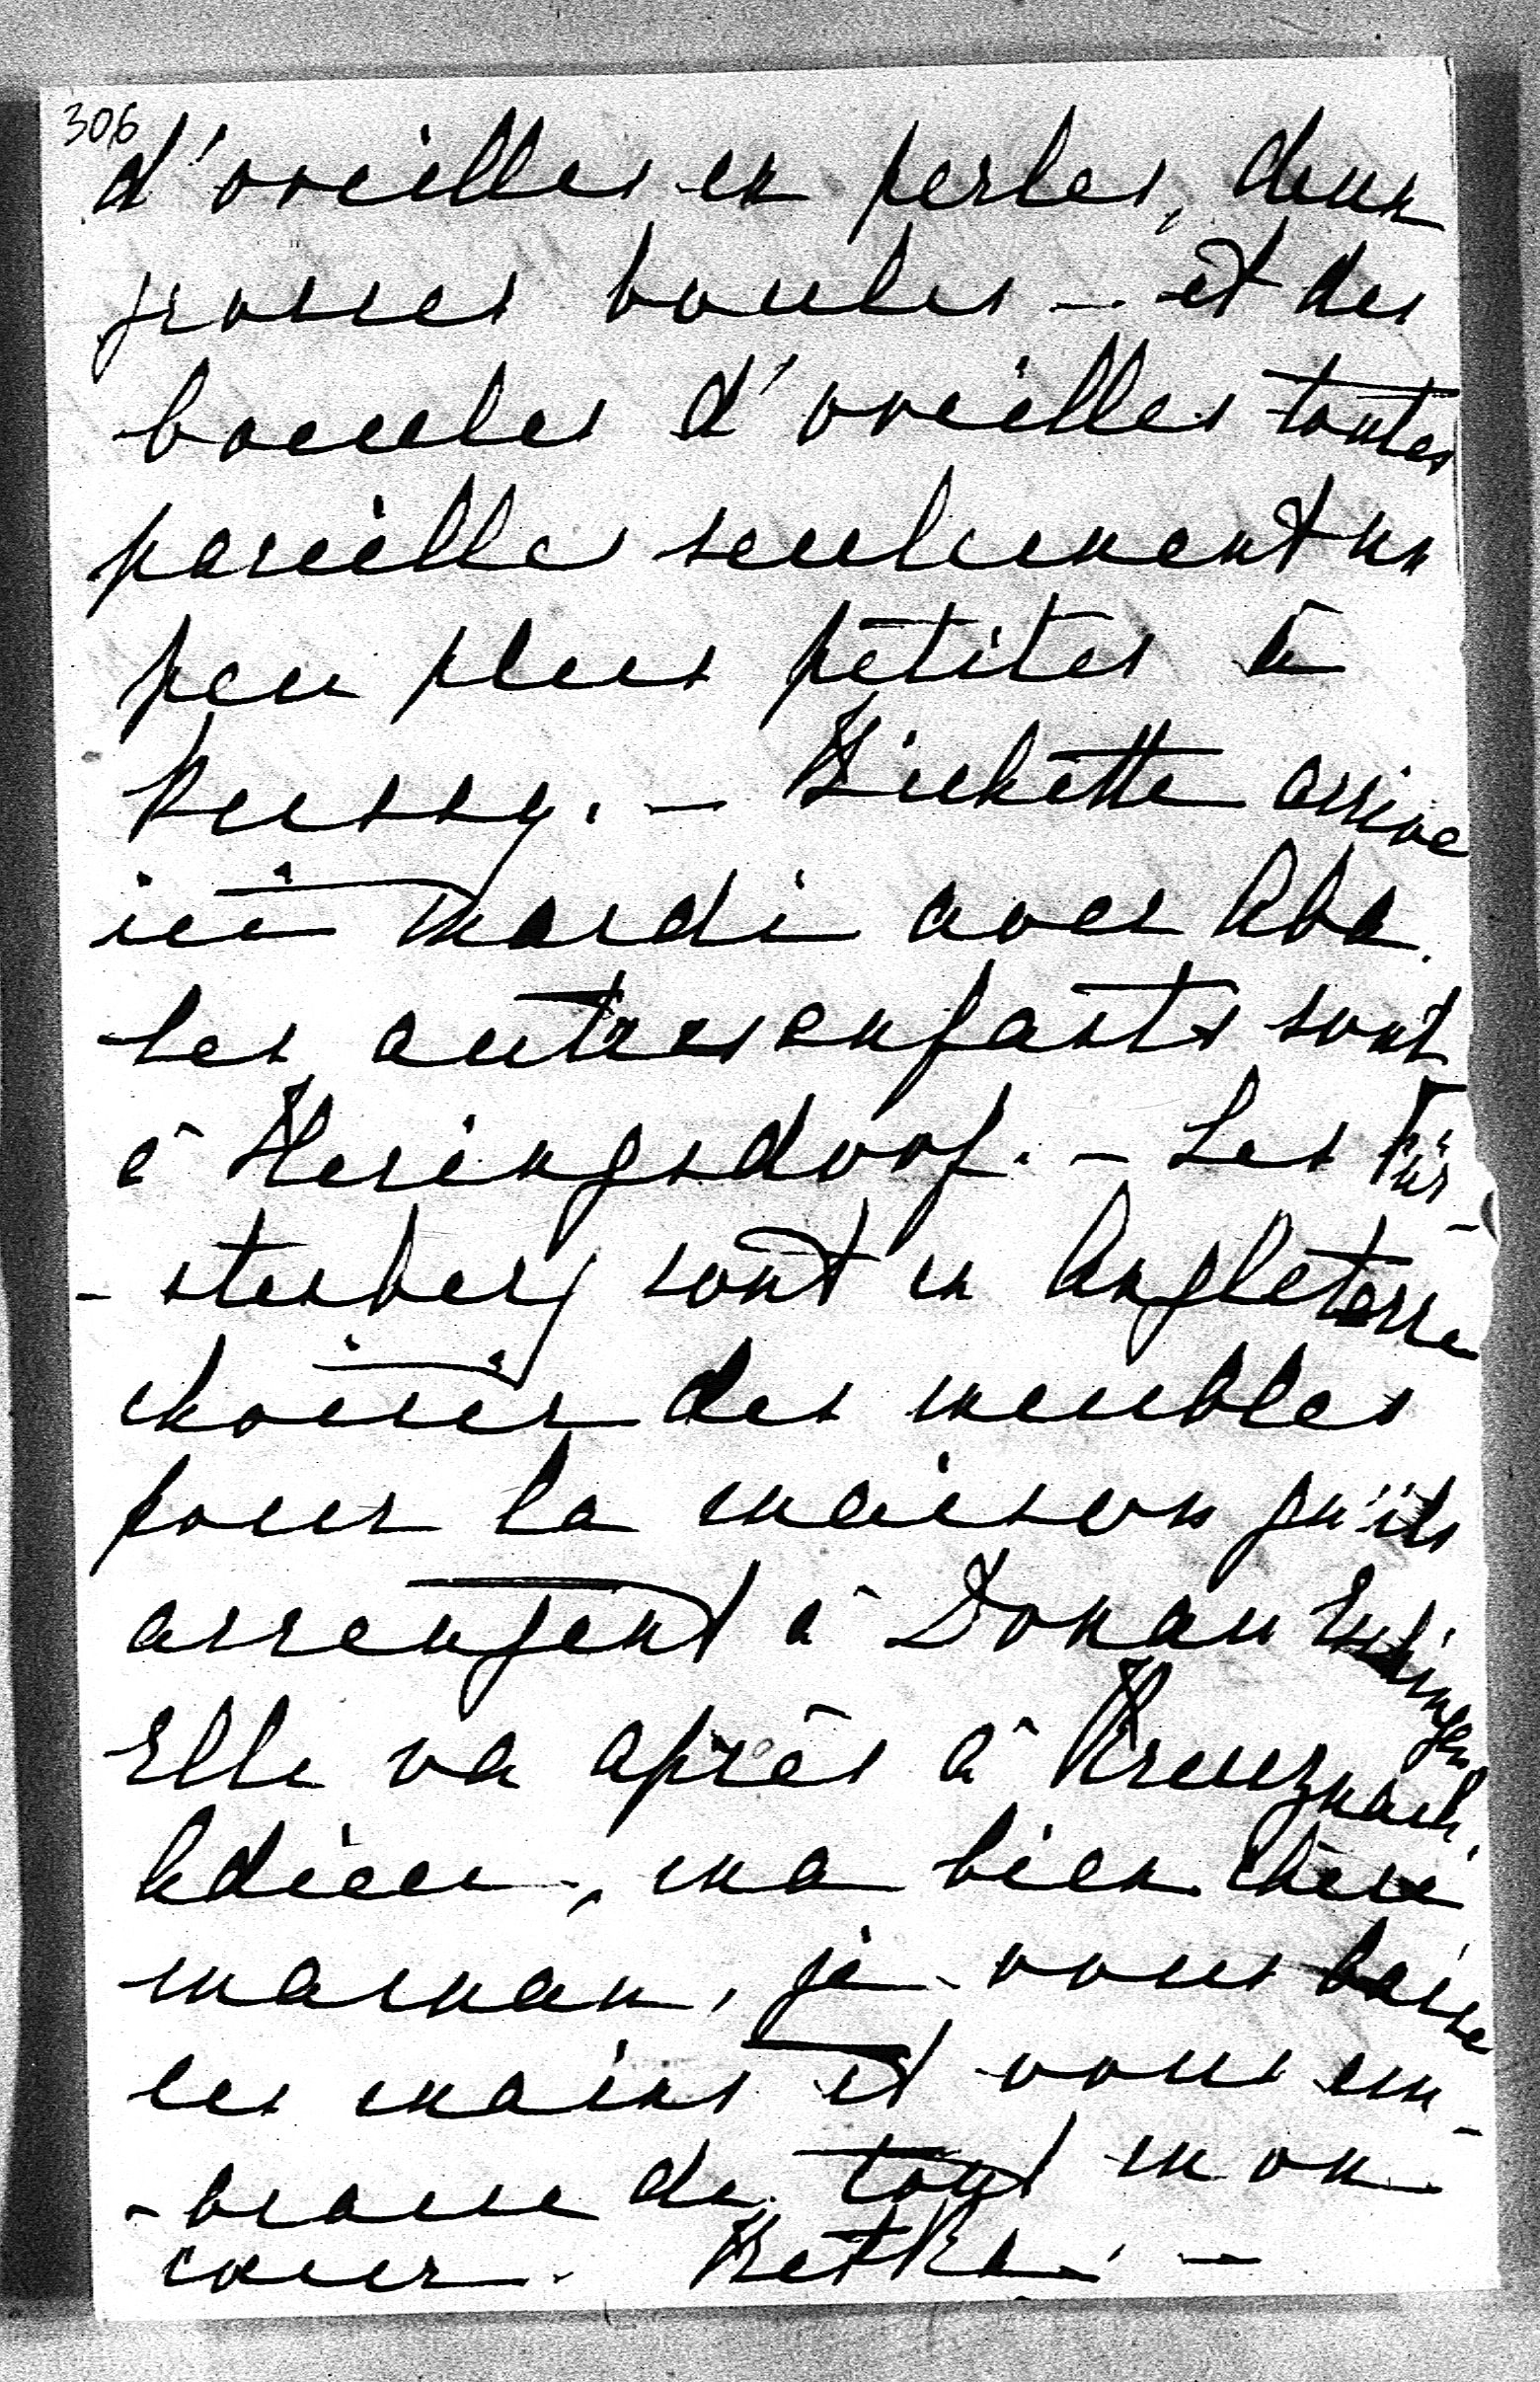 306
d'oreilles en perles, deux
grosses boules – et des
boucles d'oreilles toutes
pareilles seulement un
peu plus petites à
Pussy. – Bichette arrive
ici mardi avec Aba.
Les autres enfants sont
à Heringsdorf. – Les Für-
-stenberg sont en Angleterre
choisir des meubles
pour la maison qu'ils
arrengent à Donau Eschingen
Elle va après à Kreuznach.
Adieu, ma bien chère
maman, je vous baise
les mains et vous em-
-brasse de tout mon
cœur. Betka. –